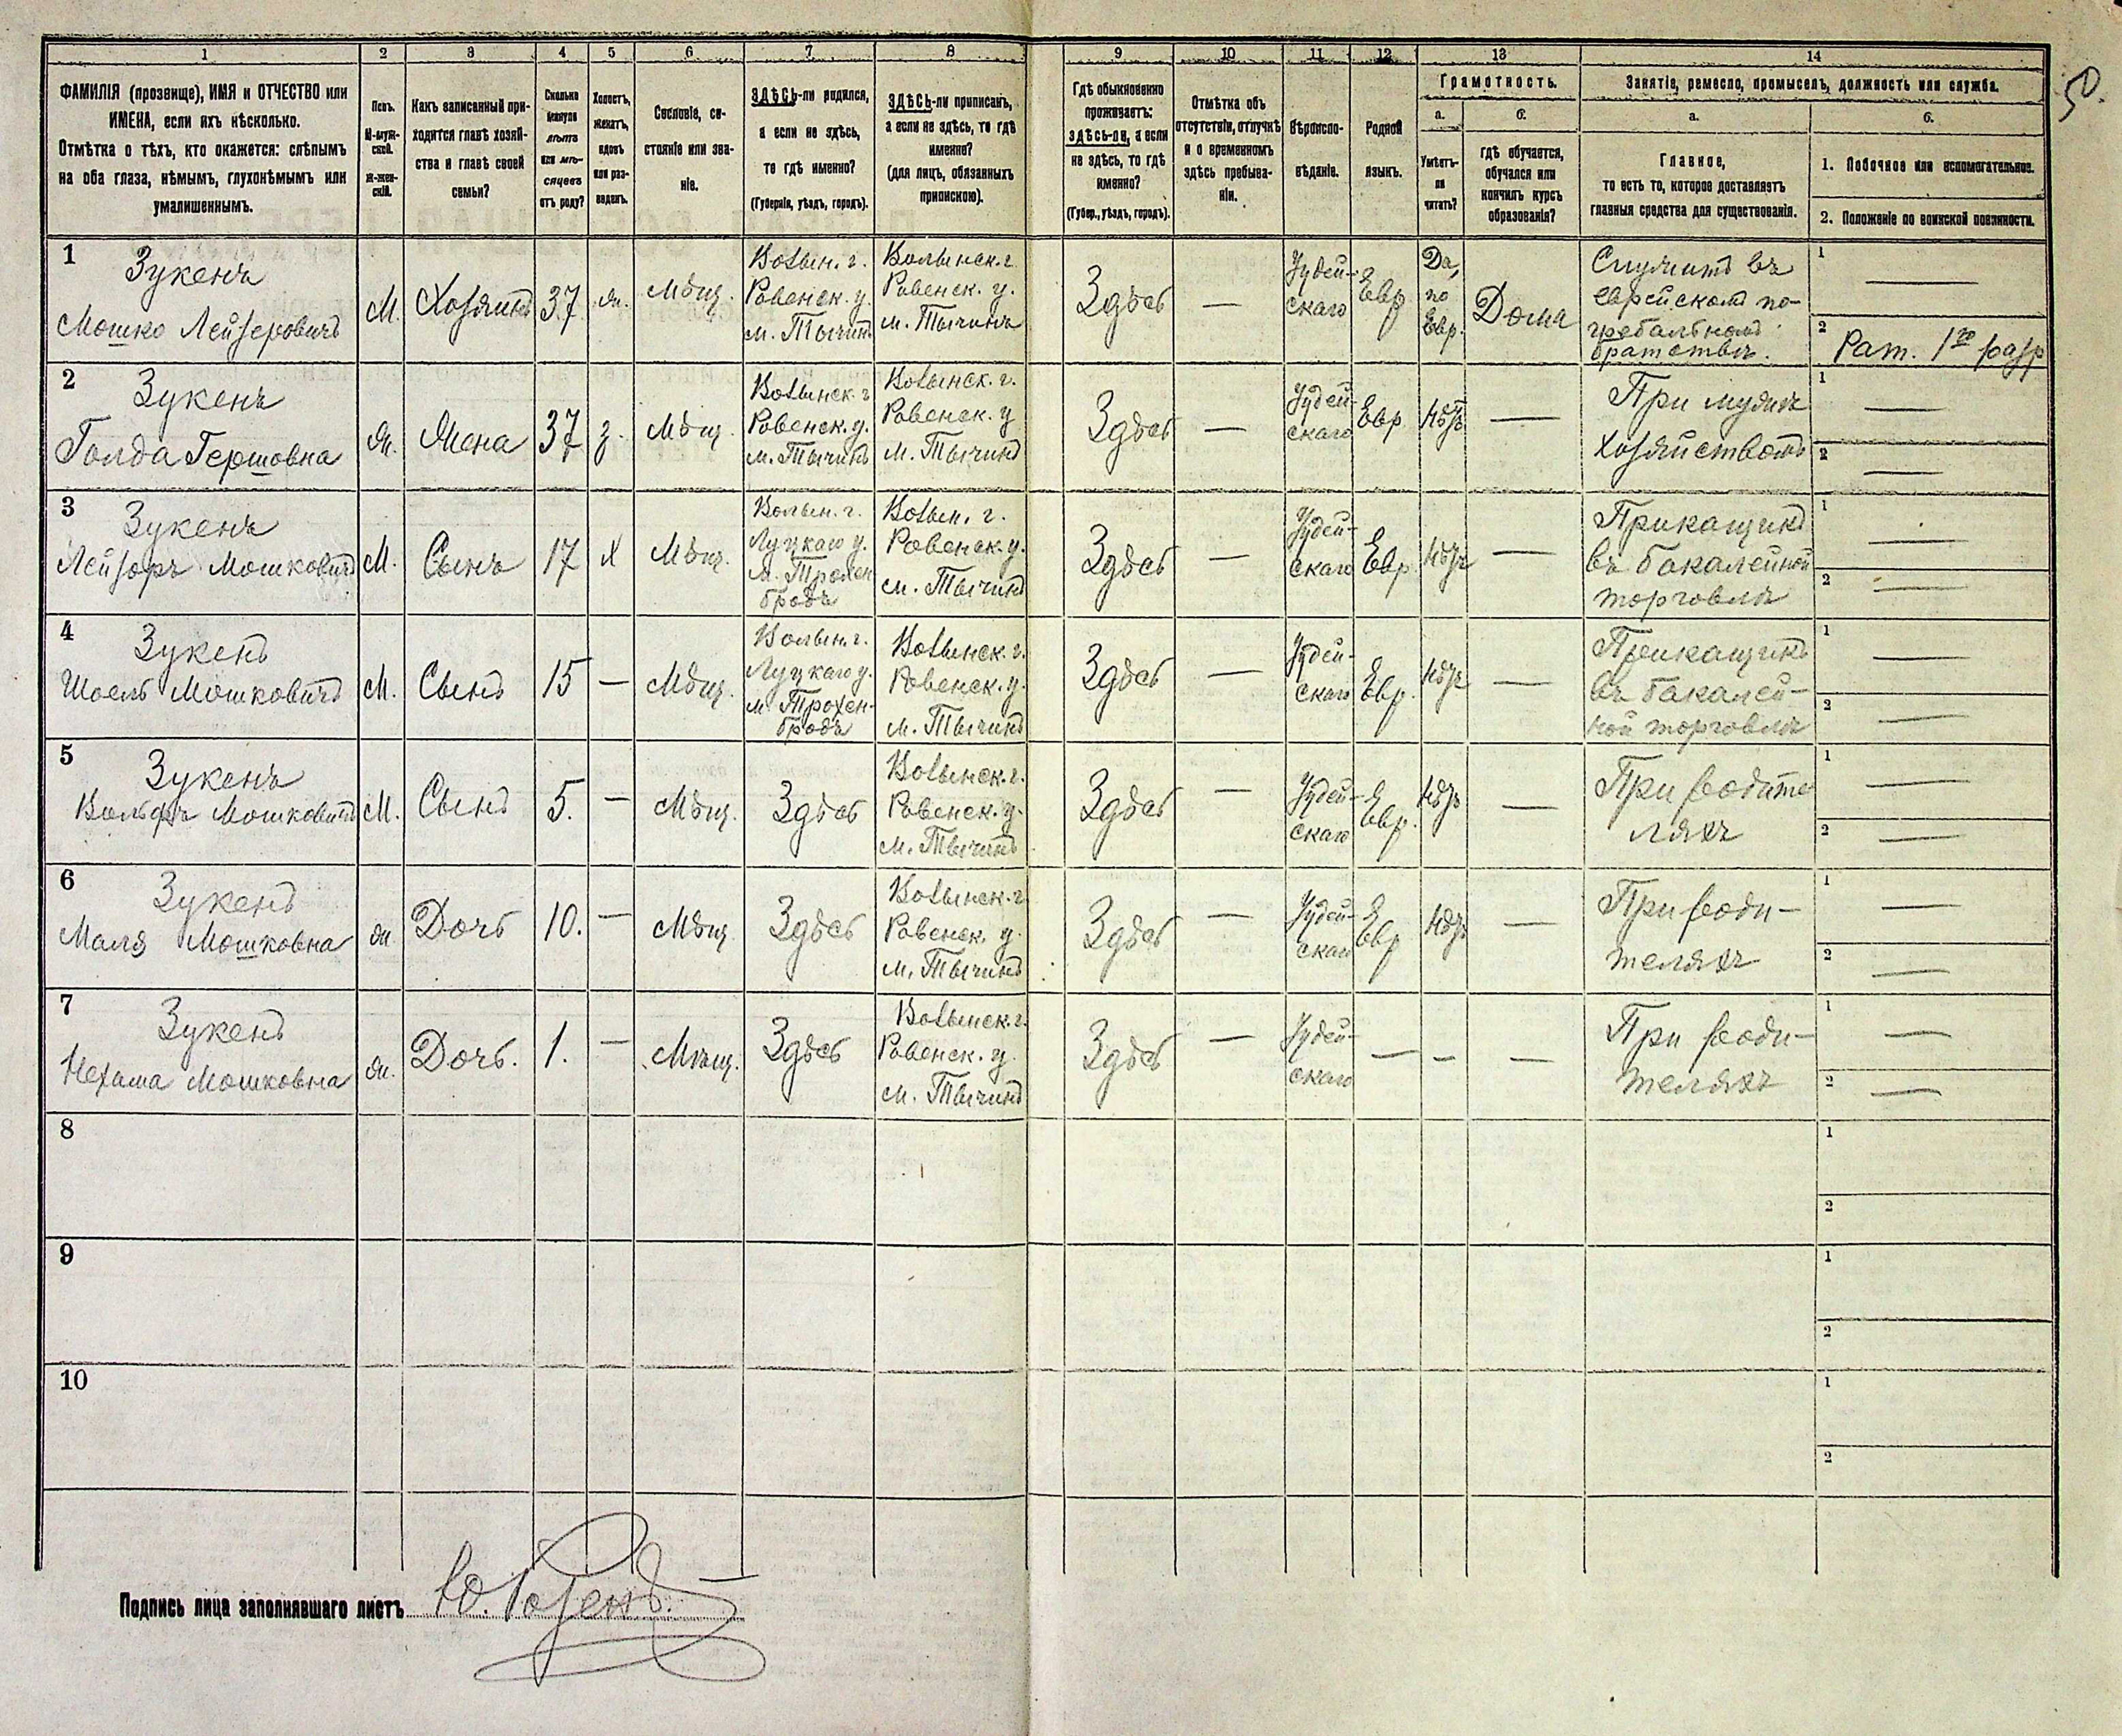 50.
1 2 3 4 5 6 7 8 9 10 11 12 13 14
ФАМИЛІЯ (прозвище), ИМЯ и ОТЧЕСТВО или
ИМЕНА, если ихъ нѣсколько.
Отмѣтка о тѣхъ, кто окажется: слѣпымъ
на оба глаза, нѣмымъ, глухонѣмымъ или
умалишеннымъ.
Полъ.
М-муж-
ской.
Ж-жен-
скій.
Какъ записанный при-
ходится главѣ хозяй-
ства и главѣ своей
семьи?
Сколько
минуло
лѣтъ
или мѣ-
сяцевъ
отъ роду?
Холостъ,
женатъ,
вдовъ
или раз-
веденъ.
Сословіе, со-
стояніе или зва-
ніе.
ЗДѢСЬ-ли родился,
а если не здѣсь,
то гдѣ именно?
(Губернія, уѣздъ, городъ).
ЗДѢСЬ-ли приписанъ,
а если не здѣсь, то гдѣ
именно?
(для лицъ, обязанныхъ
припискою).
Гдѣ обыкновенно
проживаетъ:
здѣсь-ли, а если
не здѣсь, то гдѣ
именно?
(Губер., уѣздъ, городъ).
Отмѣтка объ
отсутствіи, отлучкѣ
и о временномъ
здѣсь пребыва-
ніи.
Вѣроиспо-
вѣданіе.
Родной
языкъ.
Грамотность.
а.
Умѣетъ-
ли
читать?
б.
гдѣ обучается,
обучался или
кончилъ курсъ
образованія?
Занятіе, ремесло, промыселъ, должность или служба.
а.
Главное,
то есть то, которое доставляетъ
главныя средства для существованія.
б.
1. Побочное или вспомогательное.
2. Положеніе по воинской повинности.
1
Зукенъ
Мошко Лейзеровичъ
М.
Хозяинъ
37
ж.
Мѣщ.
Волын. г.
Ровенск. у.
м. Тычинъ
Волынск. г.
Ровенск. у.
м. Тычинъ
Здѣсь
—
Іудей-
скаго
Евр
Да,
по
Евр.
Дома
Служитъ въ
еврейскомъ по-
гребальномъ
братствѣ.
1 —
2 Рат. 1го разр
2
Зукенъ
Голда Гершовна
ж.
Жена
37
з.
Мѣщ.
Волынск. г
Ровенск. у.
м. Тычинъ
Волынск. г.
Ровенск. у
м. Тычинъ
Здѣсь
—
Іудей-
скаго
Евр
Нѣтъ
—
При мужѣ
хозяйством
1 —
2 —
3
Зукенъ
Лейзоръ Мошковичъ
М.
Сынъ
17
х
Мѣщ.
Волын. г.
Луцкаго у.
м. Трохен
бродъ
Волын. г.
Ровенск. у.
м. Тычинъ
Здѣсь
—
Іудей-
скаго
Евр
Нѣтъ
—
Приказчикъ
въ бакалейной
торговлѣ
1 —
2 —
4
Зукенъ
Шоель Мошковичъ
М.
Сынъ
15
—
Мѣщ.
Волын. г.
Луцкаго у.
м. Трохен-
бродъ
Волынск. г.
Ровенск. у.
м. Тычинъ
Здѣсь
—
Іудей-
скаго
Евр.
Нѣтъ
—
Приказчикъ
въ бакалей-
ной торговлѣ
1 —
2 —
5
Зукенъ
Вольфъ Мошковичъ
М.
Сынъ
5.
—
Мѣщ.
Здѣсь
Волынск. г.
Ровенск. у.
м. Тычинъ
Здѣсь
—
Іудей-
скаго
Евр.
Нѣтъ
—
При родите
ляхъ
1 —
2 —
6
Зукенъ
Маля Мошковна
ж.
Дочь
10.
—
Мѣщ
Здѣсь
Волынск. г
Ровенск. у.
м. Тычинъ
Здѣсь
—
Іудей-
скаго
Евр
Нѣтъ
—
При роди-
теляхъ
1 —
2 —
7
Зукенъ
Нехама Мошковна
ж.
Дочь.
1.
—
Мѣщ.
Здѣсь
Волынск. г.
Ровенск. у.
м. Тычинъ
Здѣсь
—
Іудей-
скаго
—
—
—
При роди-
теляхъ
1 —
2 —
8
1
2
9
1
2
10
1
2
Подпись лица заполнявшаго листъ Ю. Розенъ.